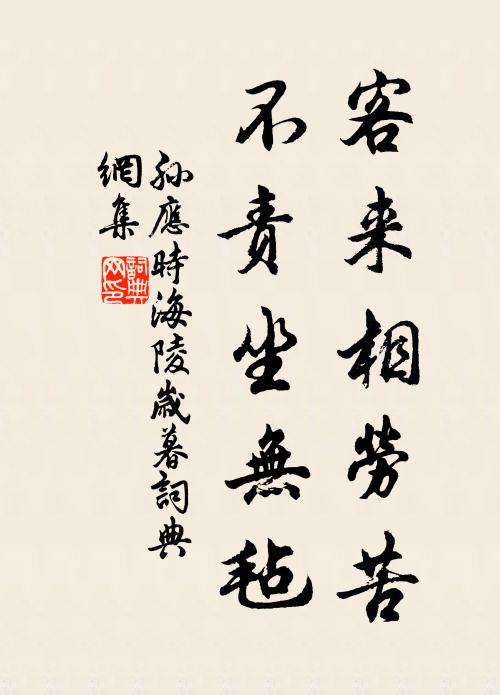 客来相勞苦
不責坐無毡
孫應時海陵歲暮詞典
網集
詞典網印